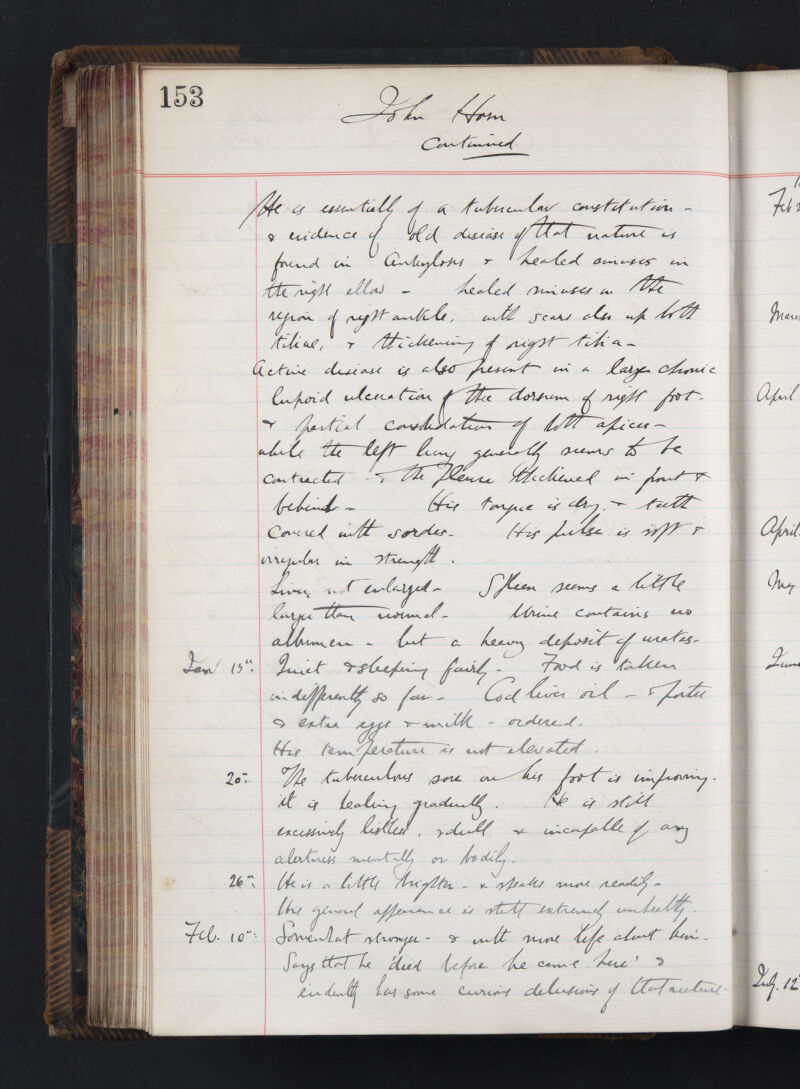 153
John Horn
Continued
He is essentially of a tubercular constitution -
& evidence of old disease of that nature is
found in Ankylosis & healed sinuses in
the right elbow - healed sinuses in the
region of right ankle, with scars also up both
tibiae, & thickening of right tibia -
Active disease is also present in a large chronic
lupoid ulceration of the dorsum of right foot -
& partial consolidation of both apices -
while the left lung generally seems to be
contracted - & the Pleura thickened in front &
behind - His tongue is dry, & teeth
covered with sordes. His pulse is soft &
irregular in strength.
Liver not enlarged - Spleen seems a little
larger than normal - Urine contains no
albumen - but a heavy deposit of urates.
Jan 15th: Quiet & sleeping fairly. Food is taken
indifferently so far - Cod liver oil - & porter
& extra eggs & milk - ordered.
His temperature is not elevated.
20th: The tuberculous sore on his foot is improving.
it is healing gradually. He is still
excessively listless, & dull & incapable of any
alertness mentally or bodily.
26th: He is a little brighter - & speaks more readily -
His general appearance is still extremely unhealthy.
Feb. 10th: Somewhat stronger - & with more life about him.
Says that he 'died before he came here' &
evidently has some curious delusions of that nature.
Feb
March
April
April
May
June
July. 12